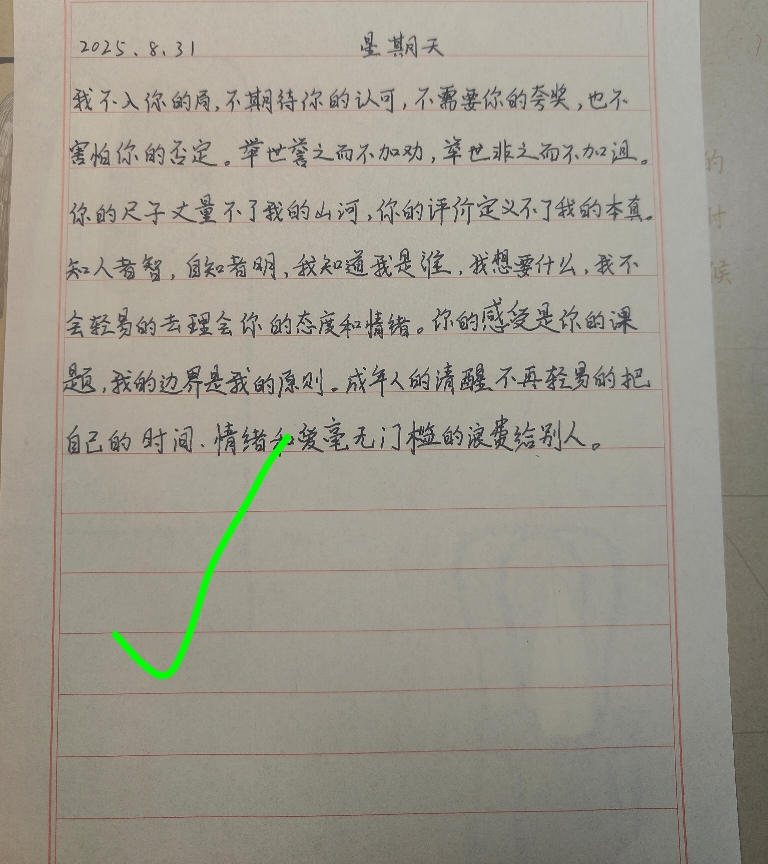 2025.8.31 星期天
我不入你的局,不期待你的认可,不需要你的夸奖,也不
害怕你的否定。举世誉之而不加劝,举世非之而不加沮。
你的尺子丈量不了我的山河,你的评价定义不了我的本真。
知人者智,自知者明,我知道我是谁,我想要什么,我不
会轻易的去理会你的态度和情绪。你的感受是你的课
题,我的边界是我的原则。成年人的清醒不再轻易的把
自己的时间、情绪和爱毫无门槛的浪费给别人。
的
时
候